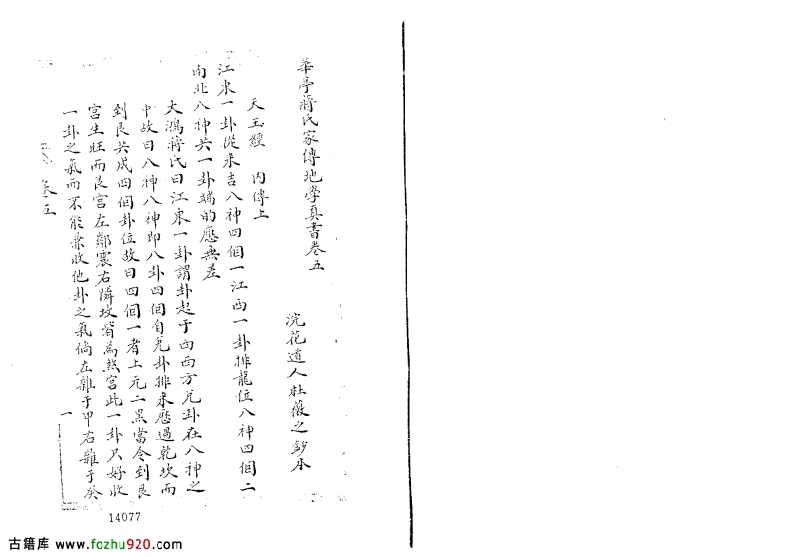 華亭蔣氏家傳地學真書卷五
浣花道人杜薇之鈔本
天玉經　內傳上
江東一卦從來吉八神四個一江西一卦排龍位八神四個二
南北八神共一卦端的應無差
大鴻蔣氏曰江東一卦謂卦起于西西方兌卦在八神之
中故曰八神八神即八卦四個自兌卦排來歷過乾坎而
到艮共成四個卦位故曰四個一者上元二黑當令到艮
宮生旺而艮宮左鄰震右隣坎皆為煞宮此一卦只好收
一卦之氣而不能兼收他卦之氣倘左雜于甲右雜于癸
卷五
一
14077
古籍库 www.fozhu920.com